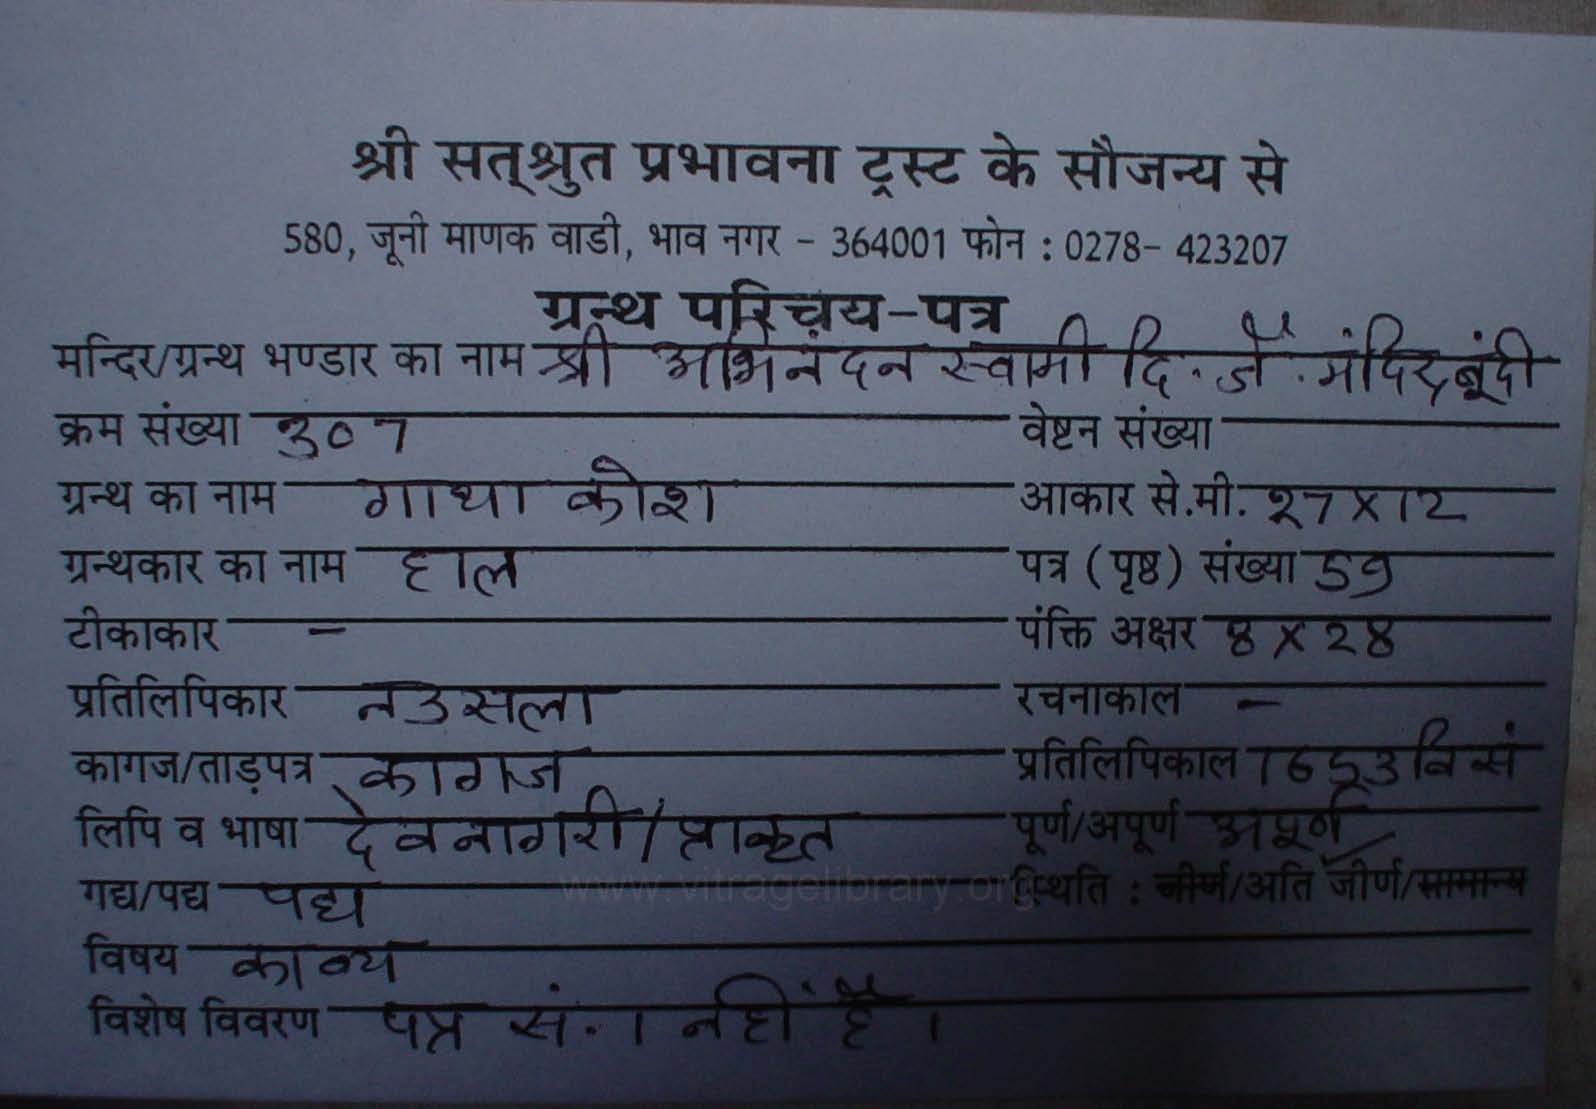 श्री सत्‌श्रुत प्रभावना ट्रस्ट के सौजन्य से
580, जूनी माणक वाडी, भाव नगर - 364001 फोन : 0278- 423207
ग्रन्थ परिचय-पत्र
मन्दिर/ग्रन्थ भण्डार का नाम श्री अभिनंदन स्वामी दि. जै. मंदिर बूंदी
क्रम संख्या 307 वेष्टन संख्या
ग्रन्थ का नाम गाथा कोश आकार से.मी. 27 X 12
ग्रन्थकार का नाम हाल पत्र (पृष्ठ) संख्या 59
टीकाकार - पंक्ति अक्षर 8 X 28
प्रतिलिपिकार नउसला रचनाकाल -
कागज/ताड़पत्र कागज प्रतिलिपिकाल 1653 वि सं
लिपि व भाषा देवनागरी/प्राकृत पूर्ण/अपूर्ण अपूर्ण
गद्य/पद्य पद्य स्थिति : जीर्ण/अति जीर्ण/सामान्य
www.vitragelibrary.org
विषय काव्य
विशेष विवरण पत्र सं. 1 नहीं है।